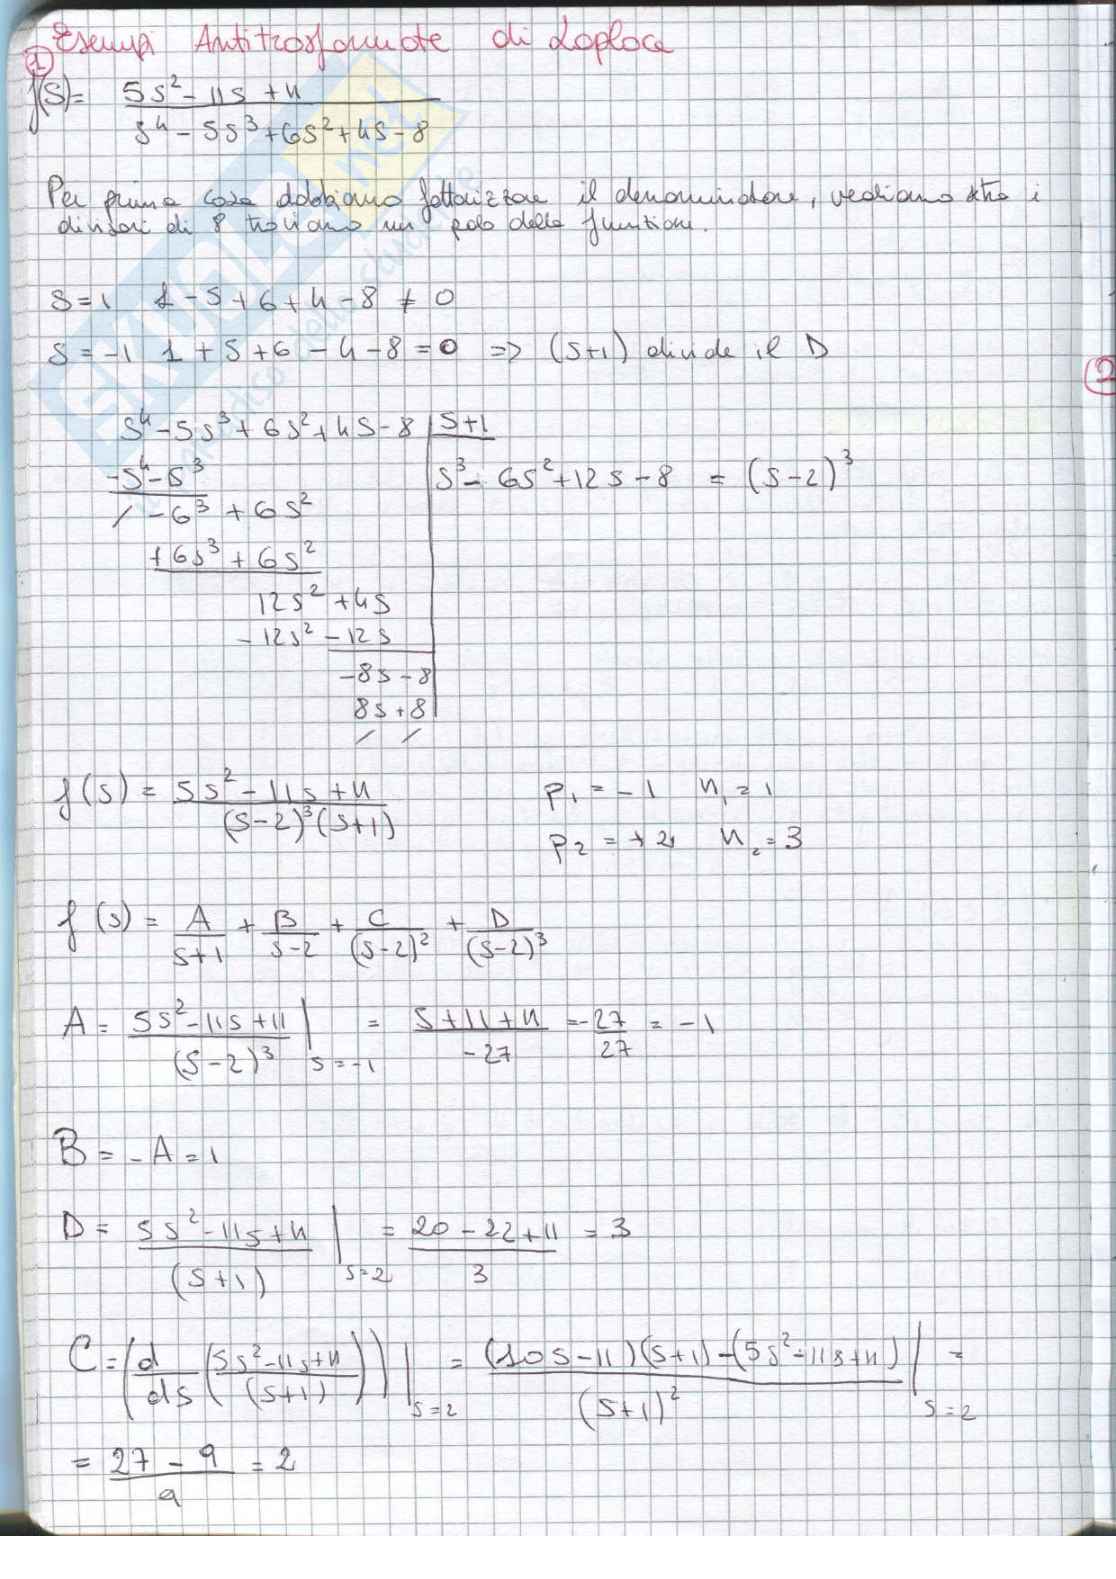 Esempi Antitrasformate di Laplace
1
f(s)= (5s² - 11s + 11)/(s⁴ - 5s³ + 6s² + 4s - 8)
Per prima cosa dobbiamo fattorizzare il denominatore, vediamo se tra i
divisori di 8 troviamo un polo della funzione.
s=1 1 - 5 + 6 + 4 - 8 ≠ 0
s = -1 1 + 5 + 6 - 4 - 8 = 0 => (s+1) divide il D
2
s⁴ - 5s³ + 6s² + 4s - 8 | s+1
-s⁴ - s³ s³ - 6s² + 12s - 8 = (s-2)³
/ -6³ + 6s²
+6s³ + 6s²
12s² + 4s
- 12s² - 12s
-8s - 8
8s + 8
/ /
f(s) = (5s² - 11s + 11)/((s-2)³(s+1)) p₁ = -1 n₁ = 1
p₂ = +2 n₂ = 3
f(s) = A/(s+1) + B/(s-2) + C/(s-2)² + D/(s-2)³
A = (5s² - 11s + 11)/(s-2)³ |s=-1 = (5+11+11)/-27 = -27/27 = -1
B = -A = 1
D = (5s² - 11s + 11)/(s+1) |s=2 = (20 - 22 + 11)/3 = 3
C = (d/ds ((5s² - 11s + 11)/(s+1))) |s=2 = ((10s - 11)(s+1) - (5s² - 11s + 11))/(s+1)² |s=2 =
= (27 - 9)/9 = 2